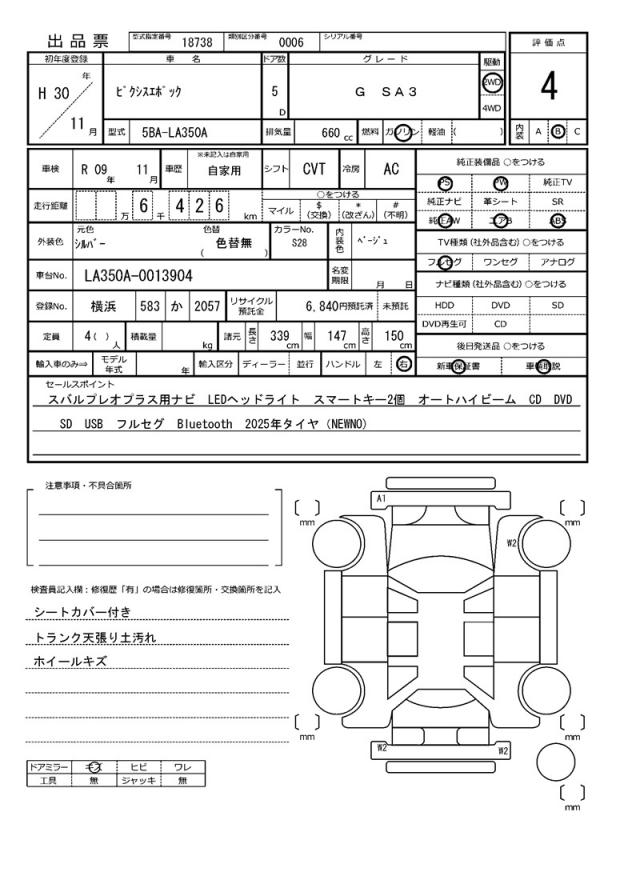 出品票 型式指定番号 18738 類別区分番号 0006 シリアル番号
評価点
4
初年度登録 車名 ドア数 グレード 駆動
H 30 年 11 月 ﾋﾟｸｼｽｴﾎﾟｯｸ 5 D G SA3 2WD 4WD
型式 5BA-LA350A 排気量 660 cc 燃料 ガソリン 軽油 ( )
内装 A B C
車検 R 09 年 11 月 車歴 ※未記入は自家用 自家用 シフト CVT 冷房 AC
走行距離 万 6 千 4 2 6 km
○をつける
マイル $(交換) *(改ざん) #(不明)
外装色 元色 ｼﾙﾊﾞｰ 色替 ( 色替無 ) カラーNo. S28 内装色 ﾍﾞｰｼﾞｭ
車台No. LA350A-0013904 名変期限 月 日
登録No. 横浜 583 か 2057 リサイクル預託金 6,840円預託済 未預託
定員 4( )人 積載量 kg 諸元 長さ 339cm 幅 147cm 高さ 150cm
輸入車のみ⇒ モデル年式 年 輸入区分 ディーラー 並行 ハンドル 左 右
純正装備品 ○をつける
PS PW 純正TV
純正ナビ 革シート SR
純正AW エアB ABS
TV種類(社外品含む)○をつける
フルセグ ワンセグ アナログ
ナビ種類(社外品含む)○をつける
HDD DVD SD
DVD再生可 CD
後日発送品 ○をつける
新車保証書 車輌取説
セールスポイント
スバルプレオプラス用ナビ LEDヘッドライト スマートキー2個 オートハイビーム CD DVD
SD USB フルセグ Bluetooth 2025年タイヤ(NEWNO)
注意事項・不具合箇所
検査員記入欄：修復歴「有」の場合は修復箇所・交換箇所を記入
シートカバー付き
トランク天張り土汚れ
ホイールキズ
ドアミラー キズ ヒビ ワレ
工具 無 ジャッキ 無
A1
mm
mm
W2
mm
mm
W2
W2
mm